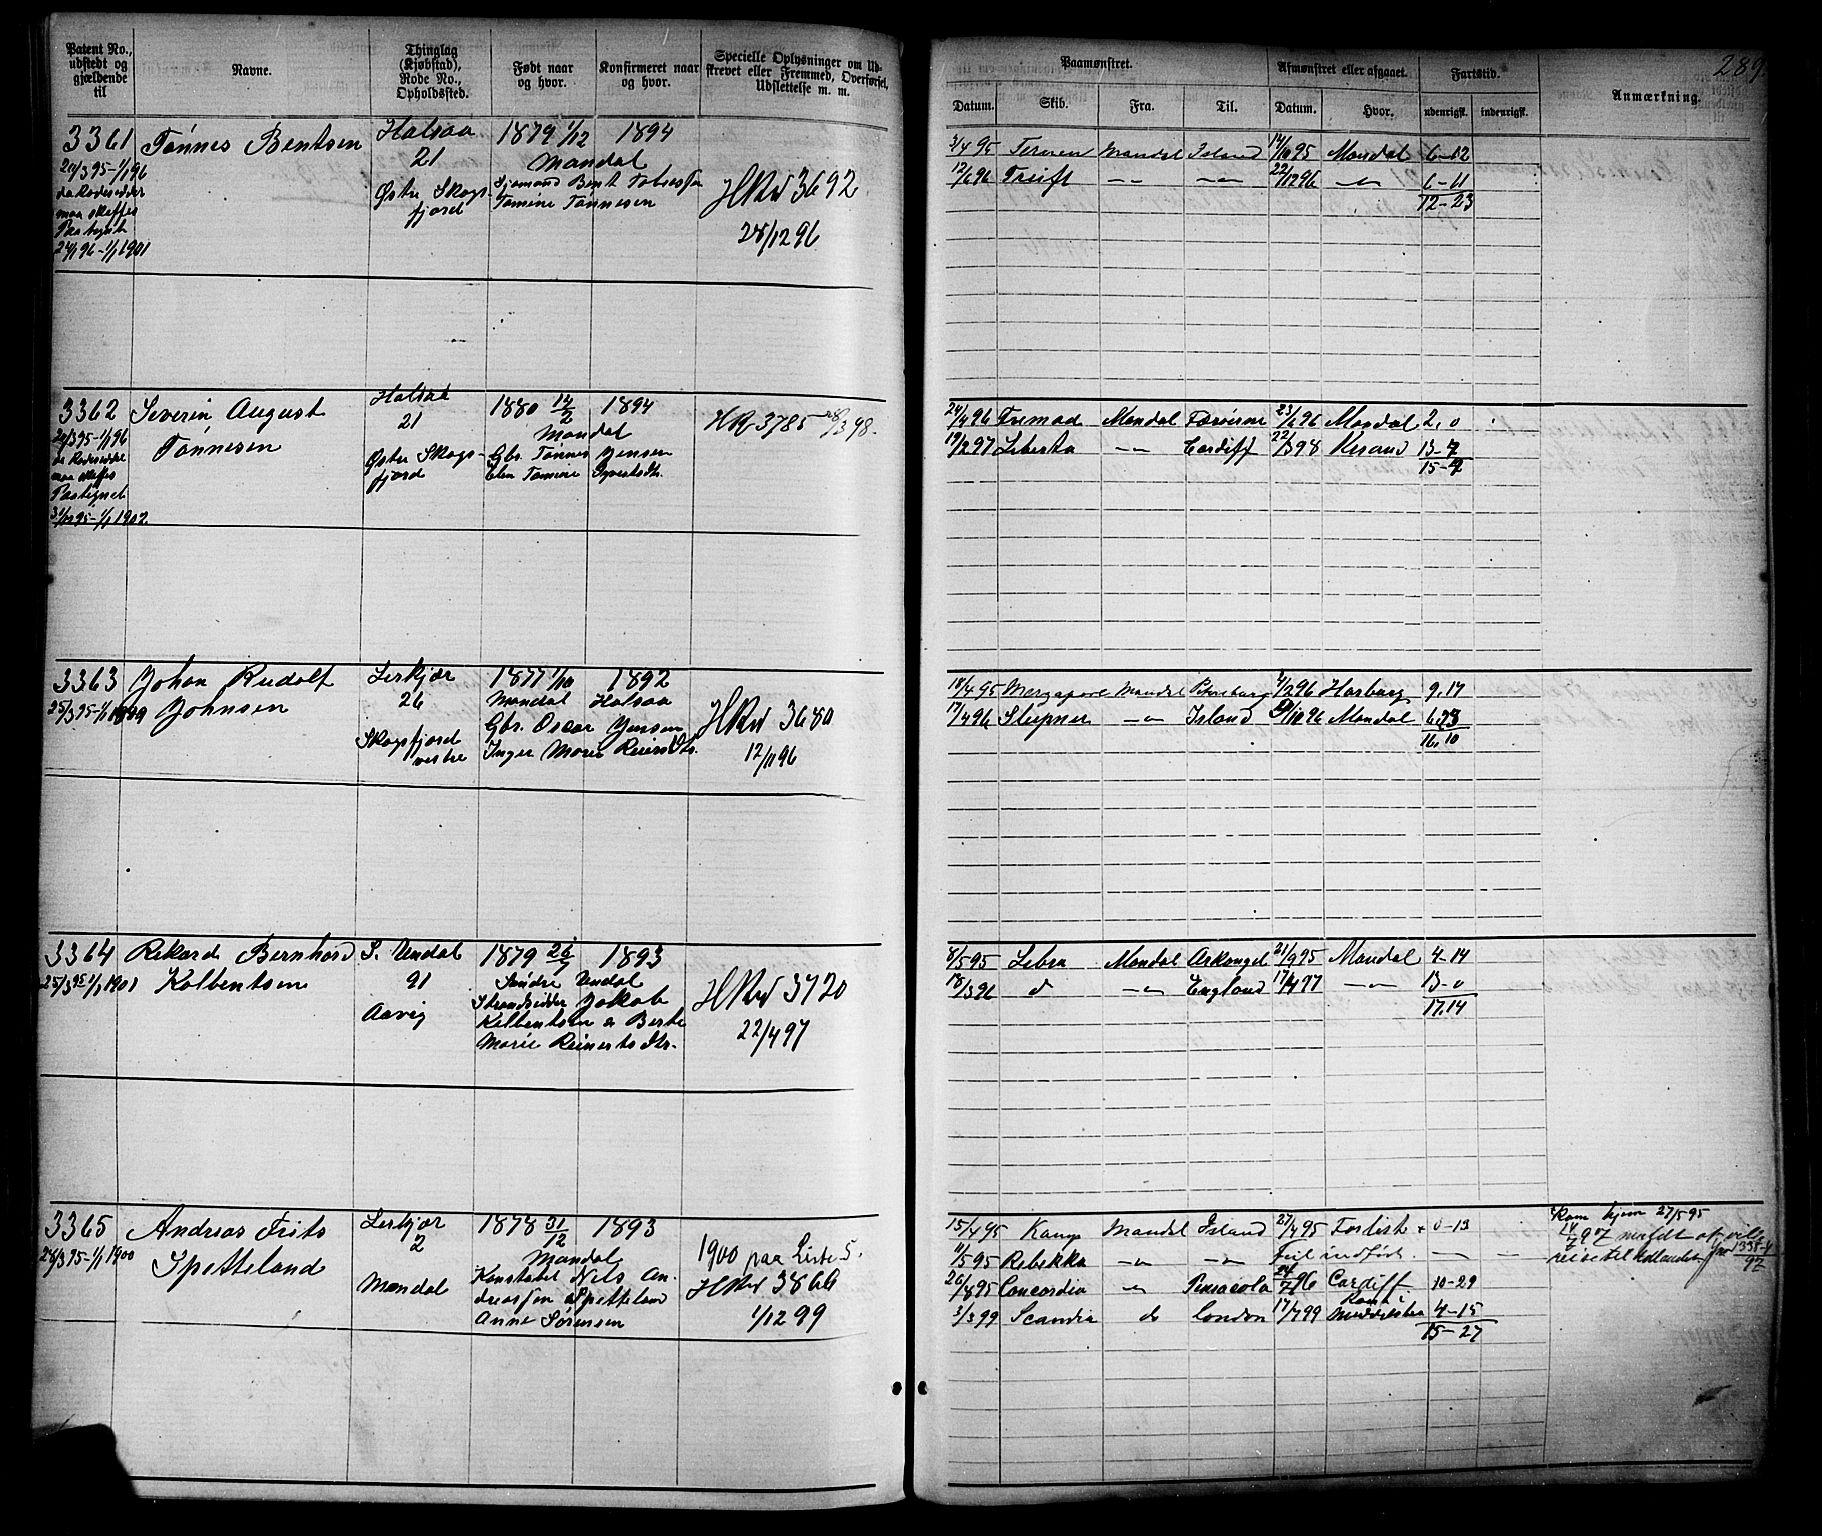 289.
Patent No., udstedt og gjældende til
Navne.
Thinglag (Kjøbstad), Rode No., Opholdssted.
Født naar og hvor.
Konfirmeret naar og hvor.
Specielle Oplysninger om Udskrevet eller Fremmed, Overførsel, Udslettelse m. m.
Paamønstret.
Afmønstret eller afgaaet.
Fartstid.
Anmærkning.
Datum.
Skib.
Fra.
Til.
Datum.
Hvor.
udenrigsk.
indenrigsk.
3361
Tønnes Bentsen
Halsaa
21
Østre Skogs-
fjord
1879 1/12
1894
Mandal
Sjømand Bent Tobiassen
Tomine Tønnesen
HRw 3692
28/12 96
24/1 96 - 1/1 1901
3/4 95 Mandal Island 14/10 95 Mandal 6-12
12/6 96 -"- -"- 22/12 96 -"- 6-11
12-23
3362
Severin August
Tønnesen
24/3 95 - 1/1 96
maa skaffes
Halsaa
21
Østre Skogs-
fjord
1880 14/2
1894
Mandal
Gbr. Tønnes Jensen
Elen Tomine
HR 3785 28/3 98.
31/12 95 - 1/1 1902.
24/4 96 Fremad Mandal Færøerne 23/6 96 Mandal 2,0
19/2 97 Liberta -"- Cardiff 22/3 98 Krsand 13-7
15-7
3363
Johan Rudolf
Johnsen
25/3 95 - 1/1 1899
Lerkjær
26
Skogsfjord
vestre
1877 1/10
1892
Mandal
Halsaa
Gbr. Oscar Jensen
Inger Marie Reiersdtr.
HRw 3680
12/11 96
18/4 95 Mandal 4/2 96 Harburg 9,17
17/4 96 Sleipner -"- Island 96 Mandal 6,23
16,10
3364
Rikard Bernhard
Kolbentsen
25/3 95 1/1 1901
S. Undal
91
Aavig
1879 26/7
1893
Søndre Undal
Strandsidder Jakob
Kolbentsen & Berte
Marie Reinertsdtr.
HRw 3720
22/4 97
8/5 95 Lebra Mandal Arkangel 21/9 95 Mandal 4-14
18/3 96 d -"- England 17/4 97 -"- 13-0
17,14
3365
Andreas Frits
Spetteland
28/3 95 - 1/1 1900
Lerkjær
2
Mandal
1878 31/12
1893
Mandal
Konstabel Nils An-
dreassen Spetteland
Anne Sørensen
1900 paa Liste 5.
HRw 3866
1/12 99
15/4 95 Kamp Mandal Island 27/4 95 Forlist + 0-13
Kom hjem 27/5 95
11/5 95 Rebekka -"- -"- Feil indført. - -
26/8 95 Concordia -"- Pensacola 24/7 96 Cardiff 10-29
3/3 99 Scandia do London 17/7 99 4-15
15-27